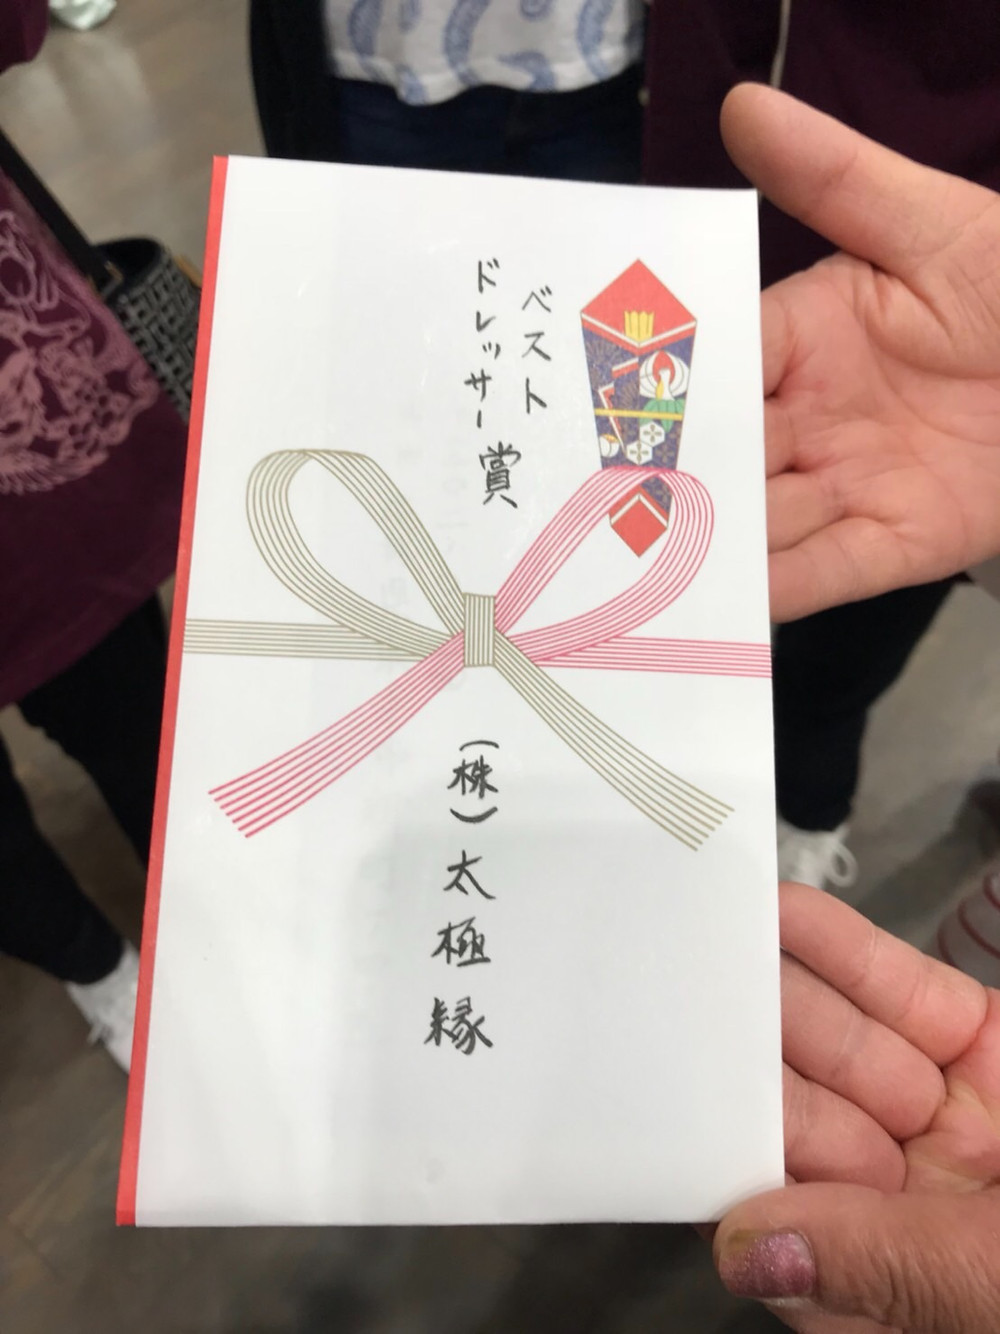 ベスト
ドレッサー賞
(株)太極縁